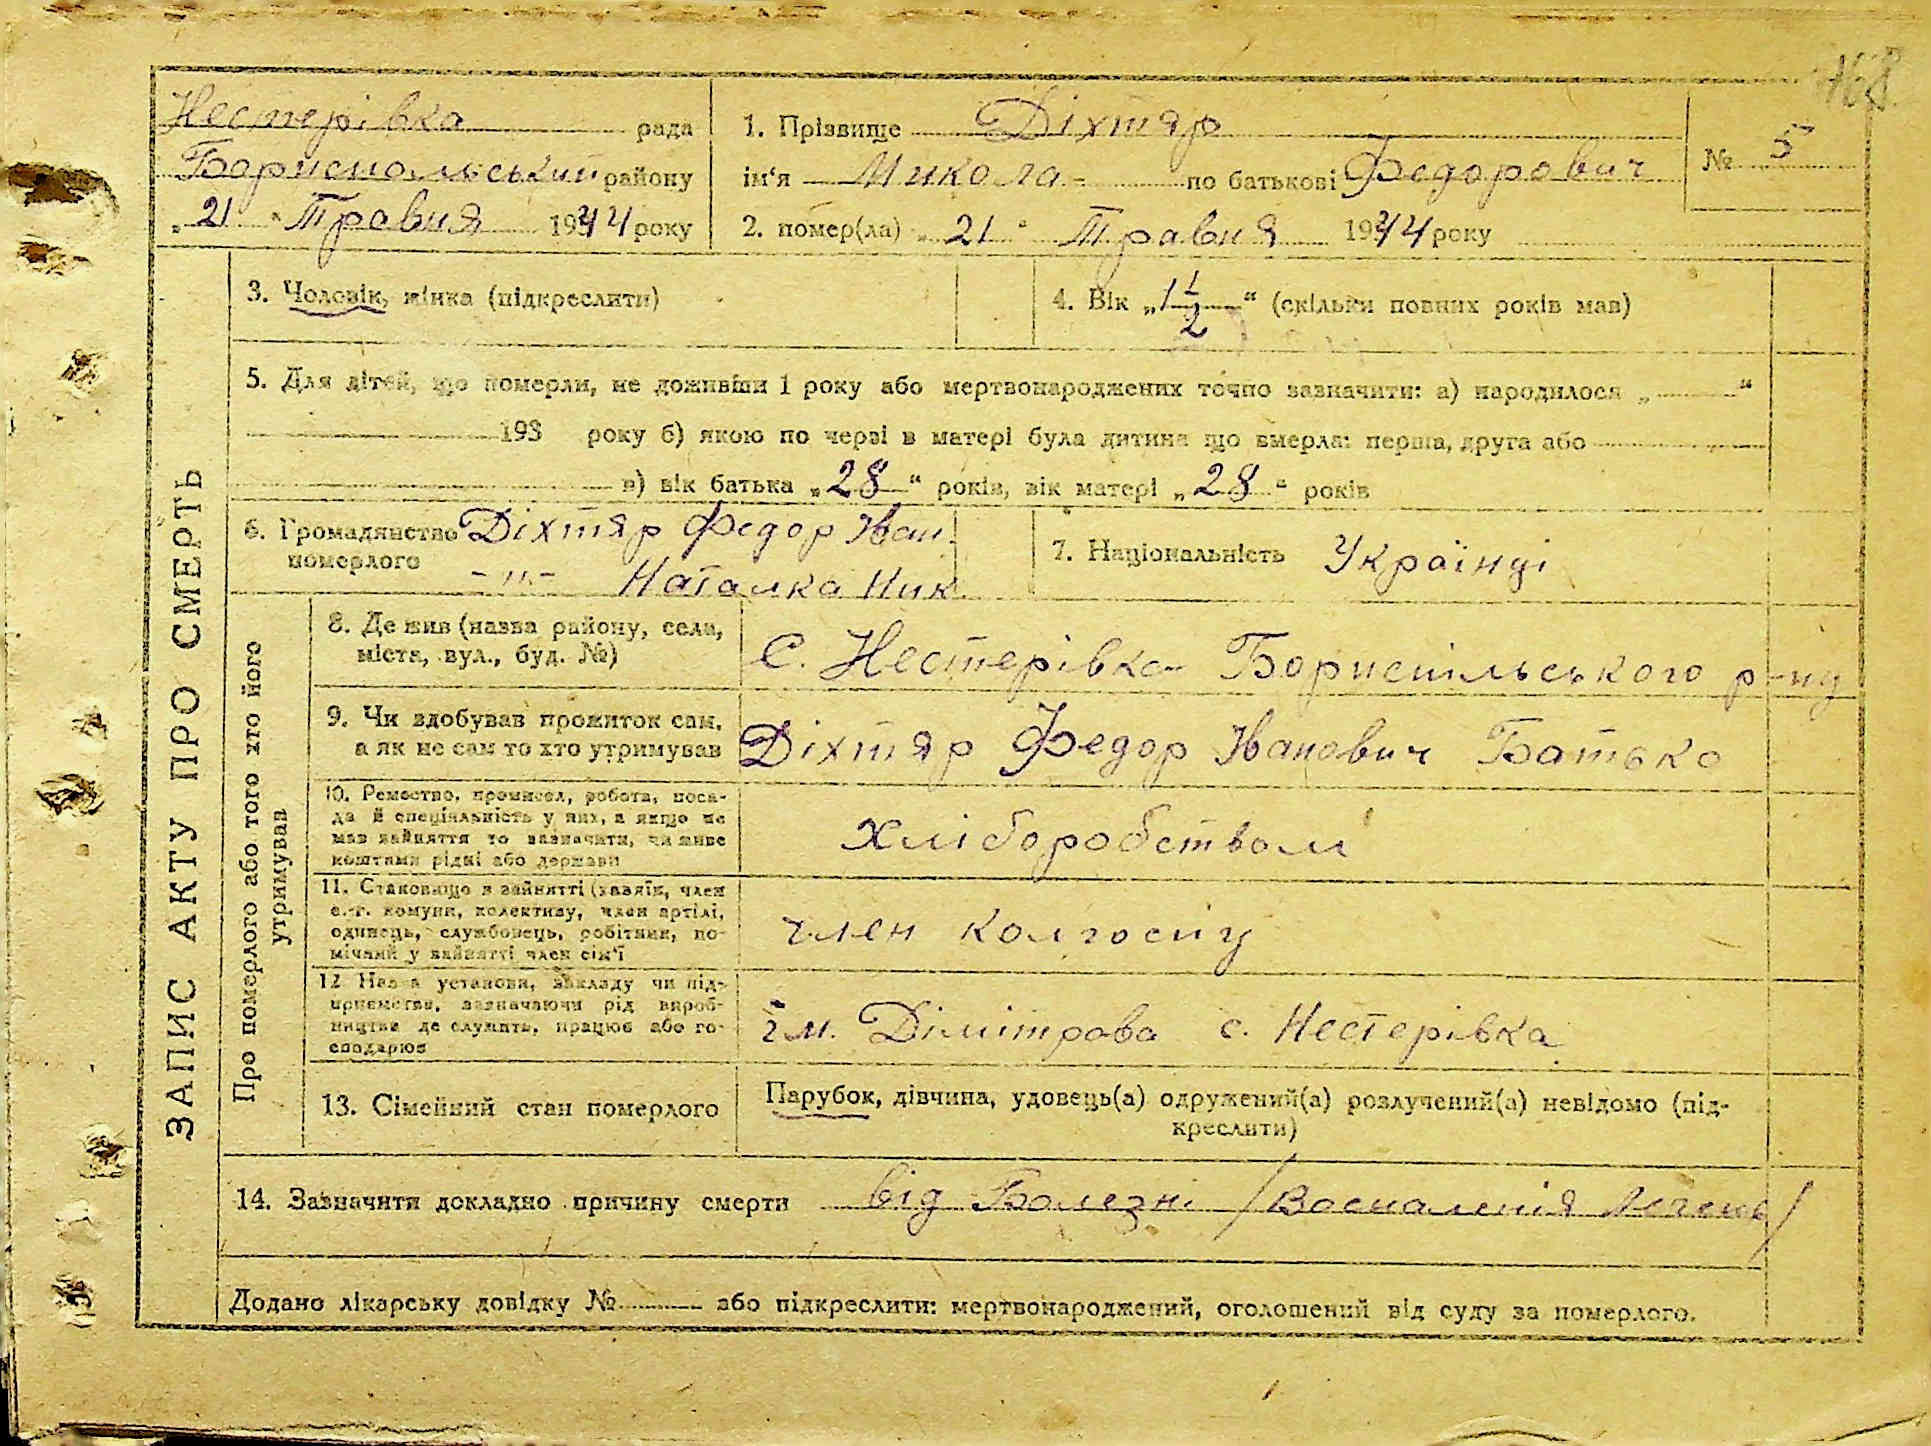 168
Нестерівка рада
Бориспольський району
„21“ Травня 1944 року
1. Прізвище Діхтяр
ім‘я Микола по батькові Федорович
2. помер(ла) „21“ Травня 1944 року
№ 5
ЗАПИС АКТУ ПРО СМЕРТЬ
3. Чоловік, жінка (підкреслити)
4. Вік „1 1/2“ (скільки повних років мав)
5. Для дітей, що померли, не доживши 1 року або мертвонароджених точно зазначити: а) народилося „ “
193 року б) якою по черзі в матері була дитина що вмерла: перша, друга або
в) вік батька „28“ років, вік матері „28“ років
6. Громадянство померлого Діхтяр Федор Іван.
-"- Наталка Ник.
7. Національність Українці
Про померлого або того хто його утримував
8. Де жив (назва району, села,
міста, вул., буд. №)
С. Нестерівка Бориспільського р-ну
9. Чи здобував прожиток сам,
а як не сам то хто утримував
Діхтяр Федор Іванович Батько
10. Ремество, промисел, робота, поса-
да й спеціяльність у них, а якщо не
мав зайняття то зазначити, чи живе
коштами рідні або держави
Хліборобством
11. Становище в зайнятті (хазяїн, член
с.-г. комуни, колективу, член артілі,
одинець, службовець, робітник, по-
мічний у зайнятті член сім‘ї
член колгоспу
12 Назва установи, закладу чи під-
приємства, зазначаючи рід вироб-
ництва де служить, працює або го-
сподарює
ім. Дімітрова с. Нестерівка
13. Сімейний стан померлого
Парубок, дівчина, удовець(а) одружений(а) розлучений(а) невідомо (під-
креслити)
14. Зазначити докладно причину смерти від Болезні /Воспаленія Легень/
Додано лікарську довідку № або підкреслити: мертвонароджений, оголошений від суду за померлого.